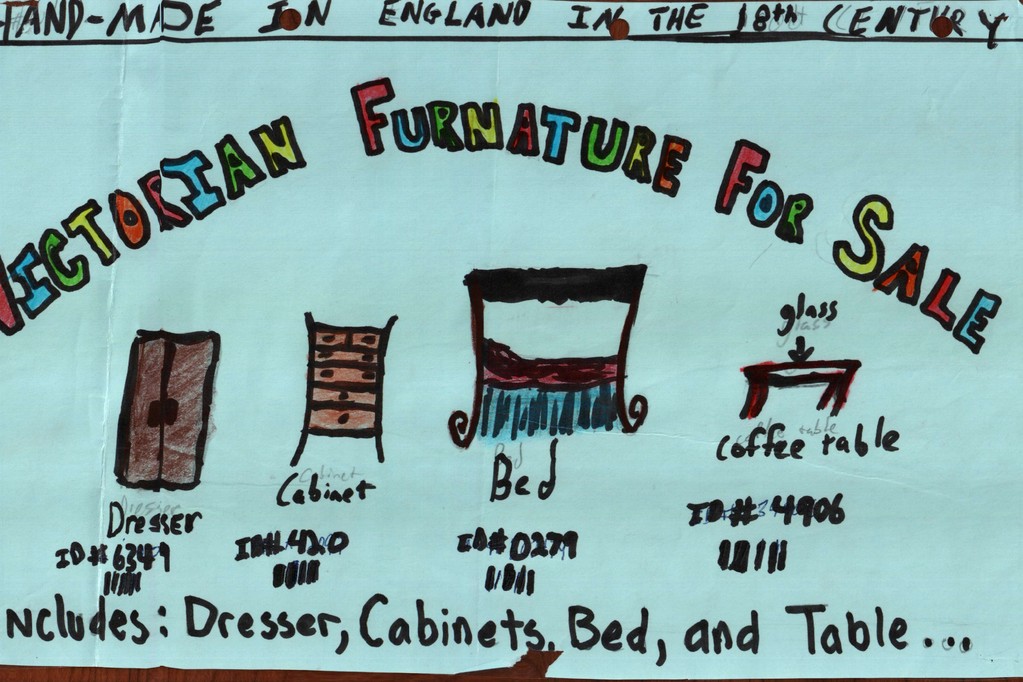 HAND-MADE IN ENGLAND IN THE 18th CENTURY
VICTORIAN FURNATURE FOR SALE
glass
Dresser
Cabinet
Bed
Coffee table
ID# 6349
ID# 420
ID# 0279
ID# 4906
ncludes: Dresser, Cabinets, Bed, and Table...